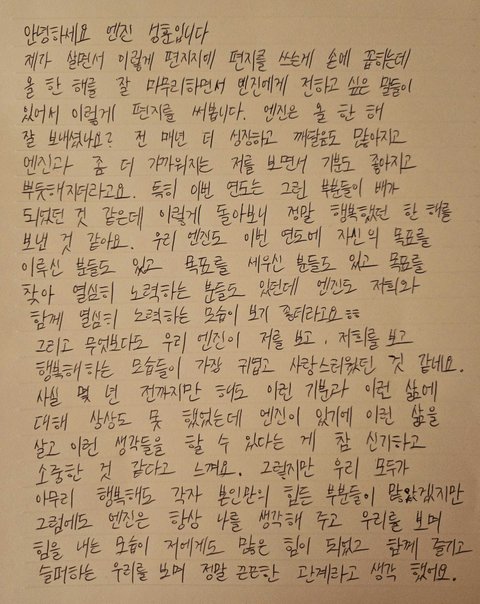 안녕하세요 엔진 성훈입니다
제가 살면서 이렇게 편지지에 편지를 쓰는게 손에 꼽히는데
올 한 해를 잘 마무리하면서 엔진에게 전하고 싶은 말들이
있어서 이렇게 편지를 써봅니다. 엔진은 올 한 해
잘 보내셨나요? 전 매년 더 성장하고 깨달음도 많아지고
엔진과 좀 더 가까워지는 저를 보면서 기분도 좋아지고
뿌듯해지더라고요. 특히 이번 연도는 그런 부분들이 배가
되었던 것 같은데 이렇게 돌아보니 정말 행복했던 한 해를
보낸 것 같아요. 우리 엔진도 이번 연도에 자신의 목표를
이룩신 분들도 있고 목표를 세우신 분들도 있고 목표를
찾아 열심히 노력하는 분들도 있던데 엔진도 저희와
함께 열심히 노력하는 모습이 보기 좋더라고요 ㅎㅎ
그리고 무엇보다도 우리 엔진이 저를 보고, 저희를 보고
행복해하는 모습들이 가장 귀엽고 사랑스러웠던 것 같네요.
사실 몇 년 전까지만 해도 이런 기분과 이런 삶에
대해 상상도 못 했었는데 엔진이 있기에 이런 삶을
살고 이런 생각들을 할 수 있다는 게 참 신기하고
소중한 것 같다고 느껴요. 그렇지만 우리 모두가
아무리 행복해도 각자 본인만의 힘든 부분들이 많았겠지만
그럼에도 엔진은 항상 나를 생각해 주고 우리를 보며
힘을 내는 모습이 저에게도 많은 힘이 되었고 함께 즐기고
슬퍼하는 우리를 보며 정말 끈끈한 관계라고 생각 했어요.